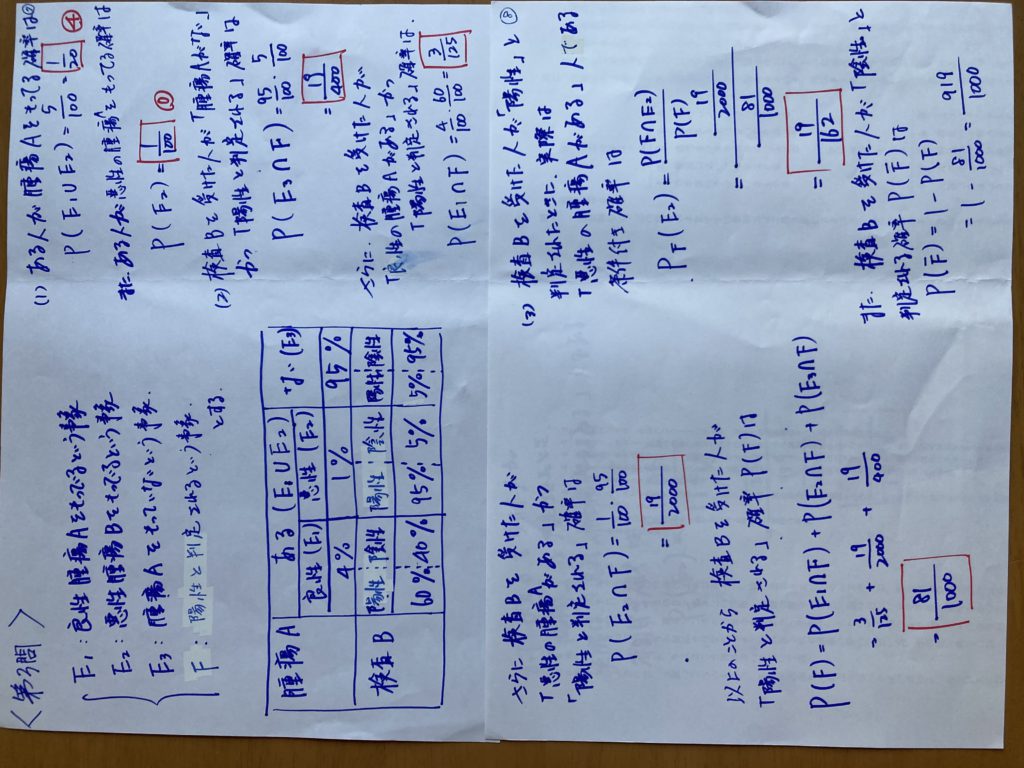 ＜第3問＞
E₁：良性腫瘍Aをもっているという事象
E₂：悪性腫瘍Bをもっているという事象
E₃：腫瘍Aをもっていないという事象
F：陽性と判定されるという事象
とする
腫瘍A
ある (E₁∪E₂)
ない (E₃)
良性 (E₁)
悪性 (E₂)
4%
1%
95%
検査B
陽性 陰性
陽性 陰性
陽性 陰性
60% 40%
95% 5%
5% 95%
(1) ある人が腫瘍Aをもってる確率は②
P(E₁∪E₂) = 5/100 = 1/20 ④
また、ある人が悪性の腫瘍をもってる確率は
P(E₂) = 1/100 ⓪
(2) 検査Bを受けた人が「腫瘍Aがない」
かつ「陽性と判定される」確率は
P(E₃∩F) = 95/100・5/100
= 19/400
さらに、検査Bを受けた人が
「良性の腫瘍Aがある」かつ
「陽性と判定される」確率は、
P(E₁∩F) = 4/100・60/100 = 3/125
さらに検査Bを受けた人が
「悪性の腫瘍Aがある」かつ
「陽性と判定される」確率は
P(E₂∩F) = 1/100・95/100
= 19/2000
以上のことから 検査Bを受けた人が
「陽性と判定される」確率P(F)は
P(F) = P(E₁∩F) + P(E₂∩F) + P(E₃∩F)
= 3/125 + 19/2000 + 19/400
= 81/1000
⑧
(3) 検査Bを受けた人が「陽性」と
判定されたときに、実際は
「悪性の腫瘍Aがある」人である
条件付き確率は
P_F(E₂) = P(F∩E₂)/P(F)
= (19/2000)/(81/1000)
= 19/162
また、検査Bを受けた人が「陰性」と
判定される確率P(F̄)は
P(F̄) = 1 - P(F)
= 1 - 81/1000 = 919/1000